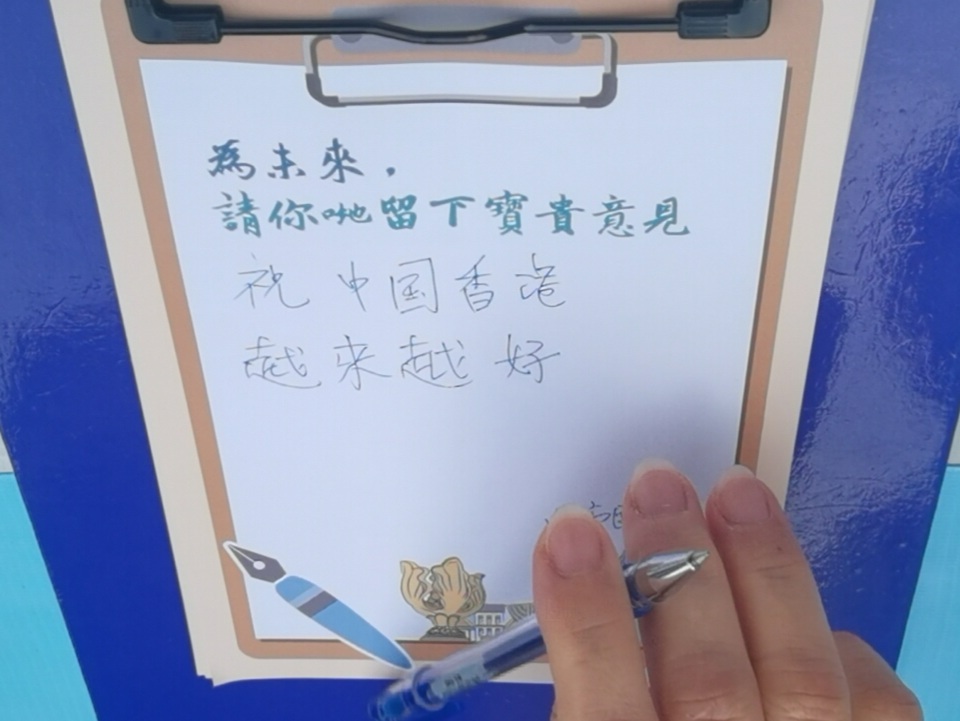 為未來，
請你哋留下寶貴意見
祝中国香港
越来越好